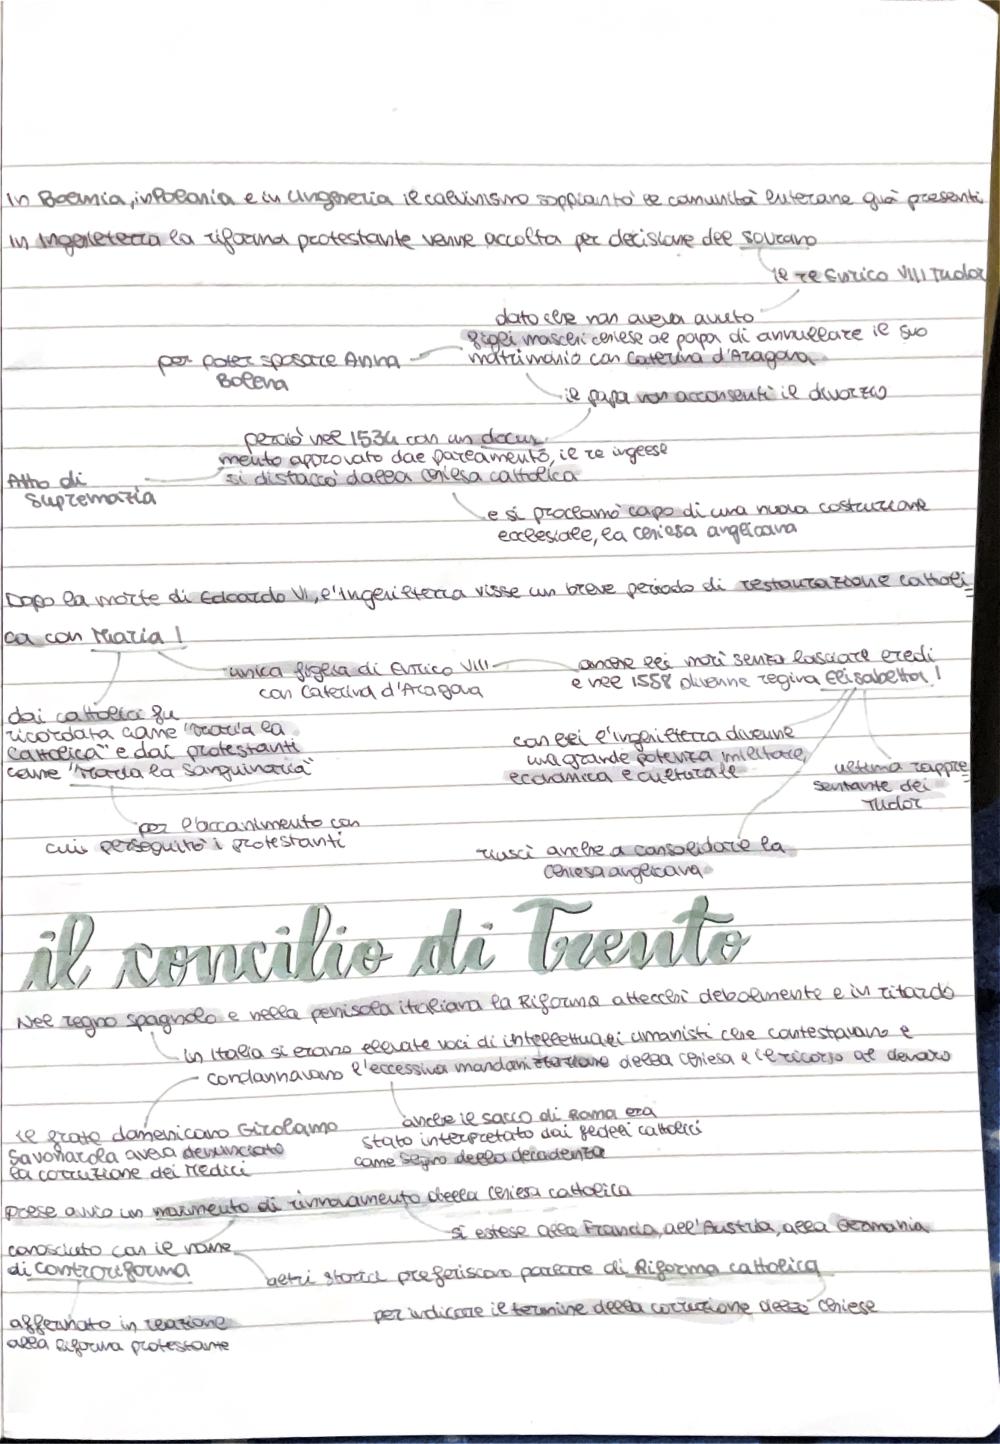 In Boemia, in Polonia e in Ungheria il calvinismo soppiantò le comunità luterane già presenti
In Inghilterra la riforma protestante venne accolta per decisione del sovrano
il re Enrico VIII Tudor
dato che non aveva avuto
figli maschi chiese al papa di annullare il suo
matrimonio con Caterina d'Aragona
per poter sposare Anna
Bolena
il papa non acconsentì il divorzio
perciò nel 1534 con un docu
mento approvato dal parlamento, il re inglese
si distaccò dalla chiesa cattolica
Atto di
Supremazia
e si proclamò capo di una nuova costruzione
ecclesiale, la chiesa anglicana
Dopo la morte di Edoardo VI, l'Inghilterra visse un breve periodo di restaurazione cattoli
ca con Maria I
unica figlia di Enrico VIII
con Caterina d'Aragona
anche lei morì senza lasciare eredi
e nel 1558 divenne regina Elisabetta I
dai cattolici fu
ricordata come "Maria la
Cattolica" e dai protestanti
come "Maria la Sanguinaria"
con lei l'Inghilterra divenne
una grande potenza militare,
economica e culturale
ultima rappre
sentante dei
Tudor
per l'accanimento con
cui perseguitò i protestanti
riuscì anche a consolidare la
chiesa anglicana
il concilio di Trento
Nel regno spagnolo e nella penisola italiana la Riforma attecchì debolmente e in ritardo
in Italia si erano elevate voci di intellettuali umanisti che contestavano e
condannavano l'eccessiva mondanizzazione della chiesa e il ricorso al denaro
il frate domenicano Girolamo
Savonarola aveva denunciato
la corruzione dei Medici
anche il sacco di Roma era
stato interpretato dai fedeli cattolici
come segno della decadenza
prese avvio un movimento di rinnovamento della chiesa cattolica
si estese alla Francia, all'Austria, alla Germania
conosciuto con il nome
di controriforma
altri storici preferiscono parlare di Riforma cattolica
per indicare il termine della corruzione delle chiese
affermato in reazione
alla Riforma protestante